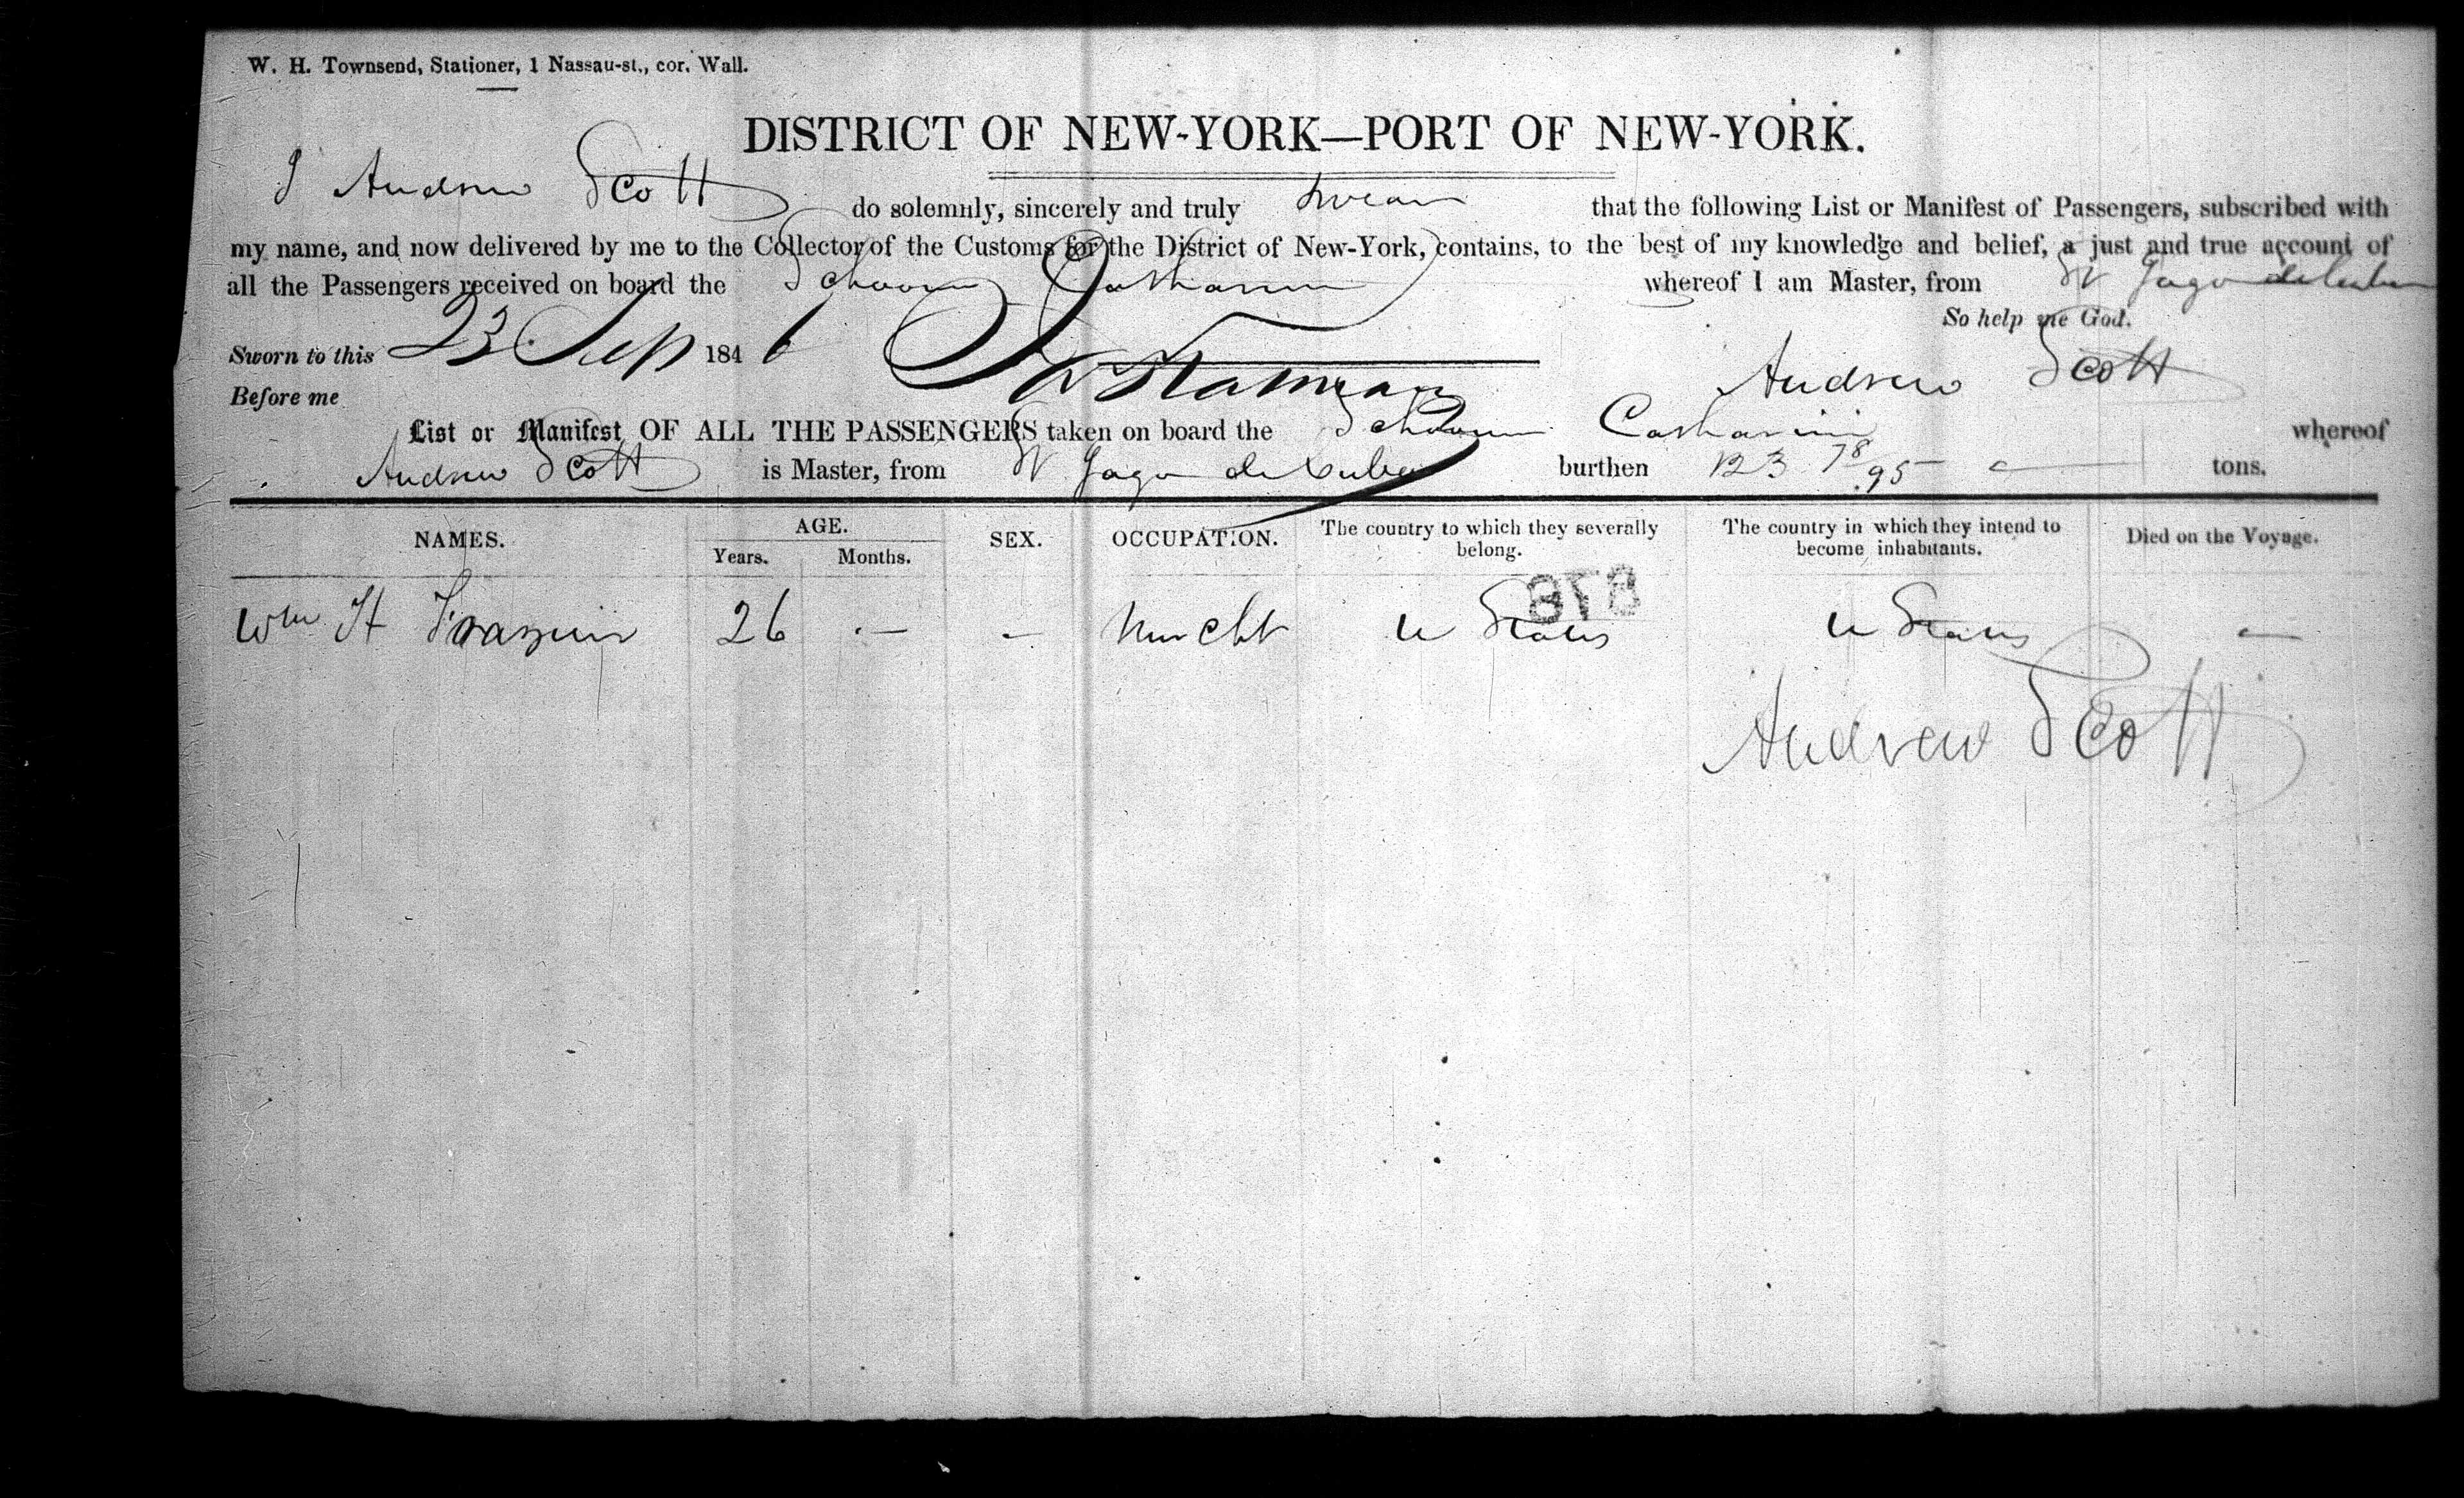 W. H. Townsend, Stationer, 1 Nassau-st., cor. Wall.
DISTRICT OF NEW-YORK—PORT OF NEW-YORK.
I Andrew Scott do solemnly, sincerely and truly swear that the following List or Manifest of Passengers, subscribed with
my name, and now delivered by me to the Collector of the Customs for the District of New-York, contains, to the best of my knowledge and belief, a just and true account of
all the Passengers received on board the Schooner Catharine whereof I am Master, from St Jago de Cuba
So help me God.
Sworn to this 23 Sep 1846
Andrew Scott
Before me
List or Manifest OF ALL THE PASSENGERS taken on board the Schooner Catharine whereof
Andrew Scott is Master, from St Jago de Cuba burthen 123 78/95 tons.
NAMES. AGE. SEX. OCCUPATION. The country to which they severally belong. The country in which they intend to become inhabitants. Died on the Voyage.
Years. Months.
878
Wm H Frazier 26 — — Mercht U States U States —
Andrew Scott